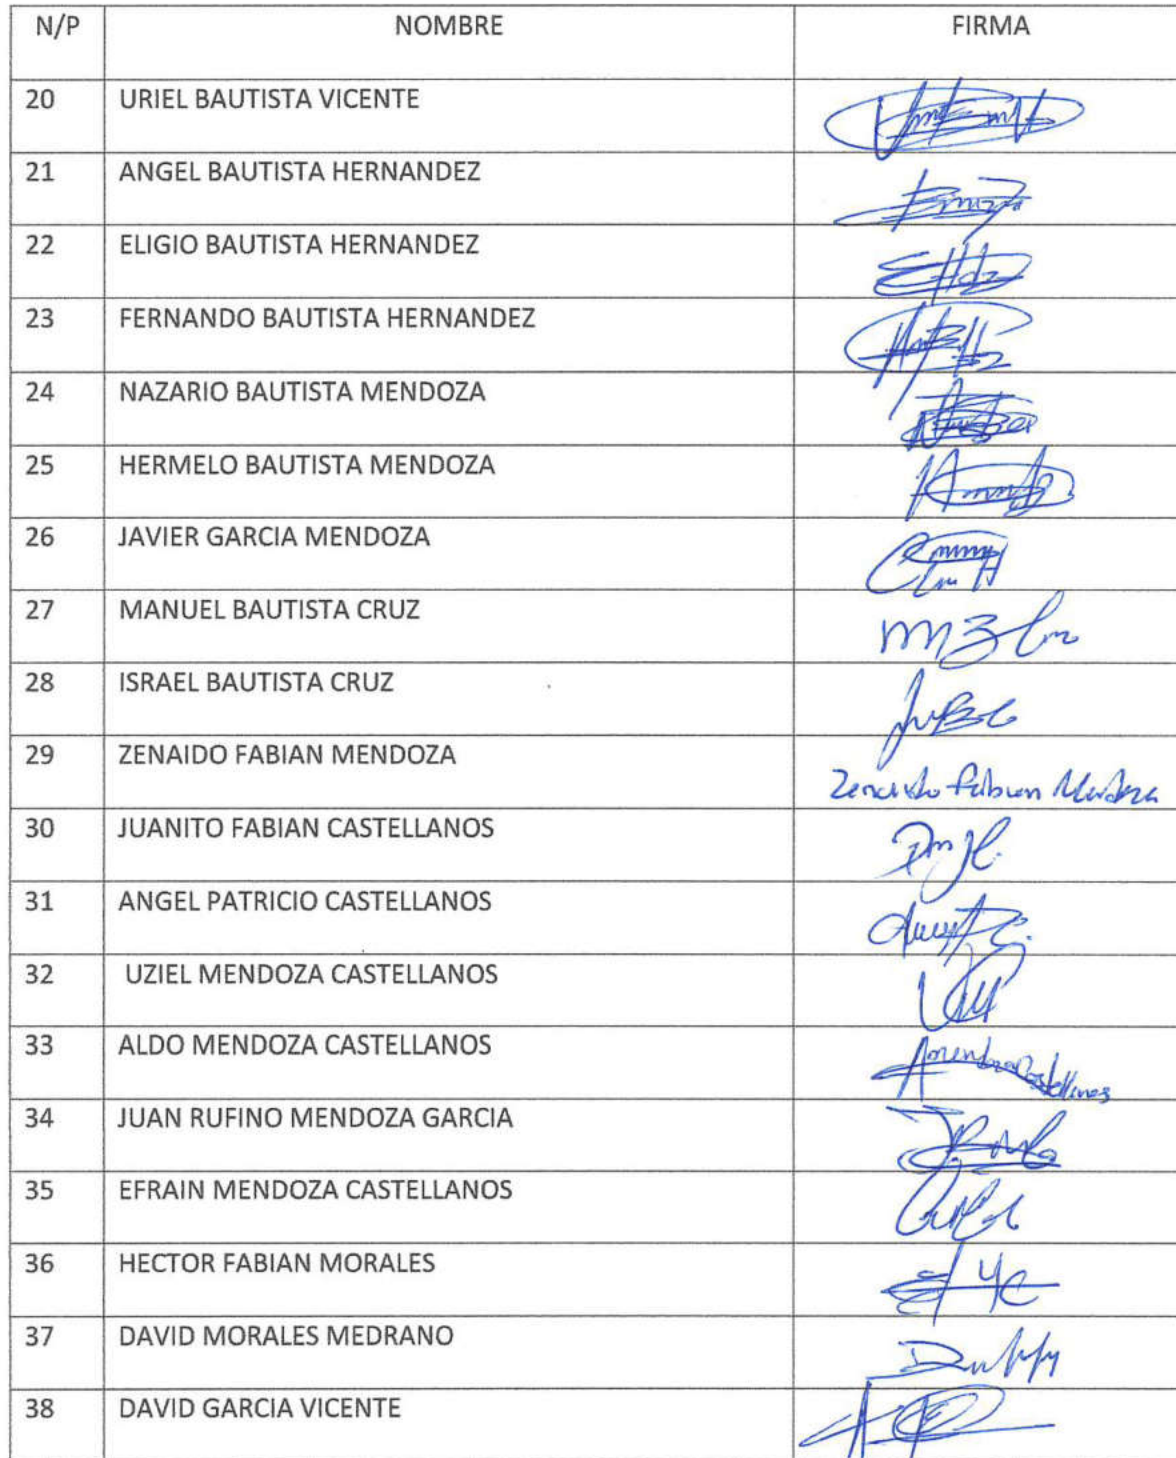 N/P NOMBRE FIRMA
20 URIEL BAUTISTA VICENTE
21 ANGEL BAUTISTA HERNANDEZ
22 ELIGIO BAUTISTA HERNANDEZ
23 FERNANDO BAUTISTA HERNANDEZ
24 NAZARIO BAUTISTA MENDOZA
25 HERMELO BAUTISTA MENDOZA
26 JAVIER GARCIA MENDOZA
27 MANUEL BAUTISTA CRUZ
28 ISRAEL BAUTISTA CRUZ
29 ZENAIDO FABIAN MENDOZA Zenaido Fabian Mendoza
30 JUANITO FABIAN CASTELLANOS
31 ANGEL PATRICIO CASTELLANOS
32 UZIEL MENDOZA CASTELLANOS
33 ALDO MENDOZA CASTELLANOS
34 JUAN RUFINO MENDOZA GARCIA
35 EFRAIN MENDOZA CASTELLANOS
36 HECTOR FABIAN MORALES
37 DAVID MORALES MEDRANO
38 DAVID GARCIA VICENTE